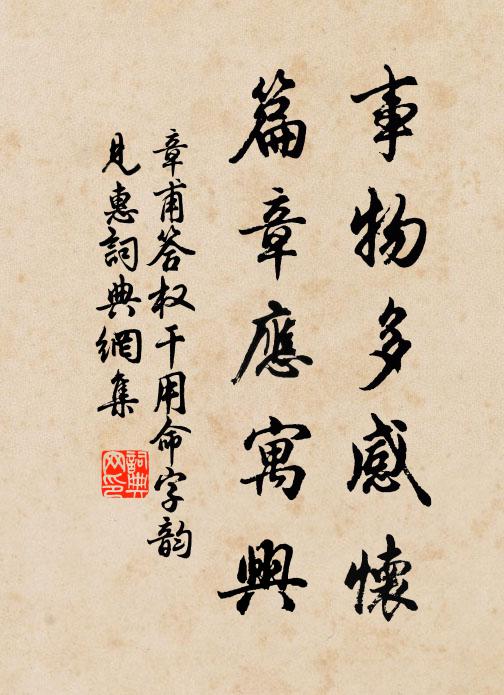 事物多感懷
篇章應寓興
章甫答权干用命字韵
見惠詞典網集
詞典网印